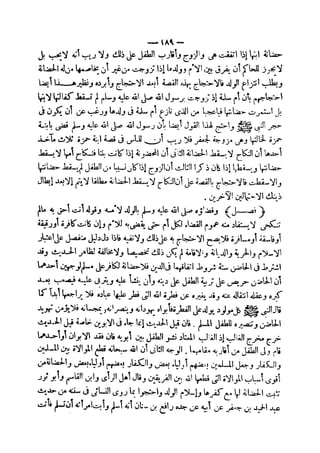 — ١٨٩ —
حضانة ابنها إذا اتفقت هى والزوج وأقارب الطفل على ذلك ولا ريب أنه لا يجب بل
لا يجوز للحاكم أن يفرق بين الأم وولدها إذا تزوجت من غير أن يخاصمها من له الحضانة
ويطلب انتزاع الولد فالاحتجاج بهذه القصة أبعد الاحتجاج وأبرده ونظير هذا أيضا
احتجاجهم بأن أم سلمة إذ تزوجت برسول الله صلى الله عليه وسلم لم تسقط كفالتها لابنها
بل استمرت حضانتها فياعجبا من الذى نازع أم سلمة فى ولدها ورغب عن أن يكون فى
حجر النبى صلى الله عليه وسلم واحتج لهذا القول أيضا بأن رسول الله صلى الله عليه وسلم قضى بابنة
حمزة لخالتها وهى مزوجة لجعفر فلا ريب أن للناس فى قصة ابنة حمزة ثلاث مآخذ
أحدها أن النكاح لا يسقط الحضانة الثانى أن المحضونة إذا كانت بنتا فنكاح أمها لا يسقط
حضانتها ويسقطها إذا كان ذكرا الثالث أن الزوج إذا كان نسيبا من الطفل لم يسقط حضانتها
وإلا سقطت فالاحتجاج بالقصة على أن النكاح لا يسقط الحضانة مطلقا لا يتم إلا بعد إبطال
ذينك الاحتمالين الآخرين .
( فصـــل ) وقضاؤه صلى الله عليه وسلم بالولد لأمه وقوله أنت أحق به ما لم
تنكحى لا يستفاد منه عموم القضاء لكل أم حتى يقضى به للأم وإن كانت كافرة أو رقيقة
أو فاسقة أو مسافرة فلا يصح الاحتجاج به على ذلك ولا نفيه فإذا دل دليل منفصل على اعتبار
الاسلام والحرية والديانة والاقامة لم يكن ذلك تخصيصا ولا مخالفة لظاهر الحديث وقد
اشترط فى الحاضن ستة شروط اتفاقهما فى الدين فلا حضانة لكافر على مسلم لوجهين أحدهما
أن الحاضن حريص على تربية الطفل على دينه وأن ينشأ عليه ويتربى عليه فيصعب بعد
كبره وعقله انتقاله عنه وقد يغيره عن فطرة الله التى فطر عليها عباده فلا يراجعها أبدا كما
قال النبى صلى الله عليه وسلم كل مولود يولد على الفطرة فأبواه يهودانه وينصرانه ويمجسانه فلا يؤمن تهويد
الحاضن وتنصيره للطفل المسلم . فان قيل الحديث إنما جاء فى الأبوين خاصة قيل الحديث
خرج مخرج الغالب إذ الغالب المعتاد نشو الطفل بين أبويه فان فقد الأبوان أو أحدهما
قام ولى الطفل من أقاربه مقامهما . الوجه الثانى أن الله سبحانه قطع الموالاة بين المسلمين
والكفار وجعل المسلمين بعضهم أولياء بعض والكفار بعضهم أولياء بعض والحضانة من
أقوى أسباب الموالاة التى قطعها الله بين الفريقين وقال أهل الرأى وابن القاسم وأبو ثور
تثبت الحضانة لها مع كفرها وإسلام الولد واحتجوا بما روى النسائى فى سننه من حديث
عبد الحميد بن جعفر عن أبيه عن جده رافع بن سنان أنه أسلم وأبت امرأته أن تسلم فأتت